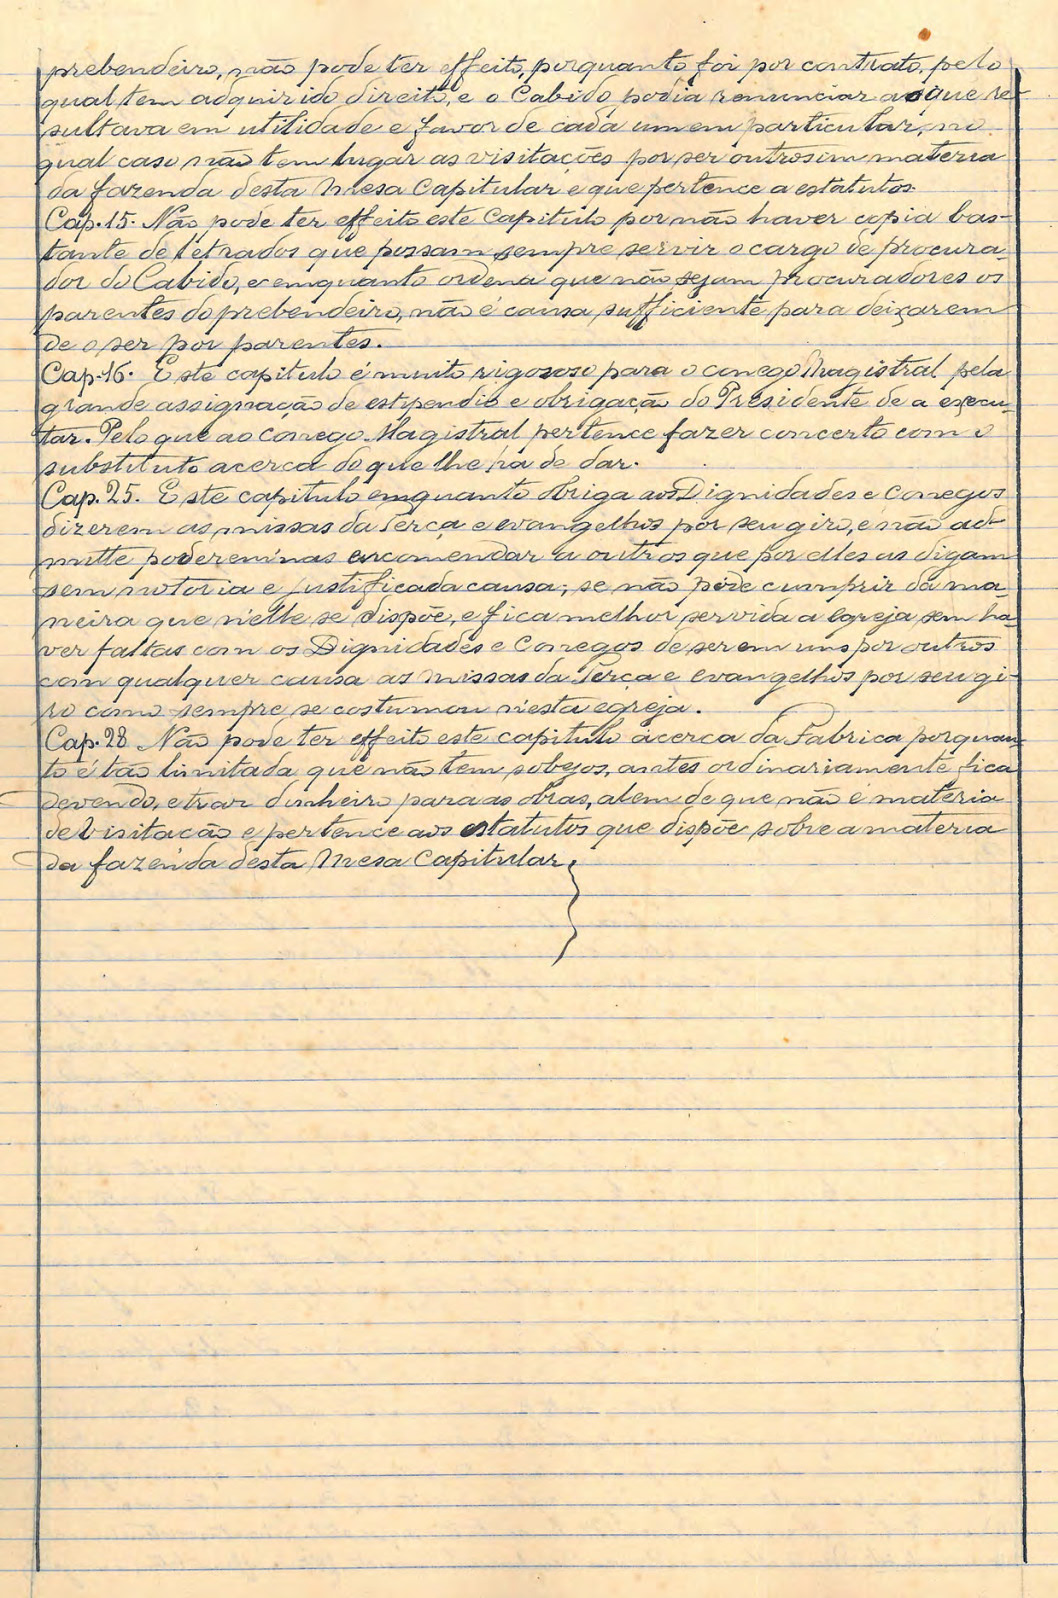 prebendeiro, não pode ter effeito, porquanto foi por contrato, pelo
qual tem adquirido direito, e o Cabido podia renunciar ao que re-
sultava em utilidade e favor de cada um em particular, no
qual caso não tem lugar as visitações por ser outrosim materia
da fazenda desta Mesa Capitular e que pertence a estatutos.
Cap. 15. Não pode ter effeito este Capitulo por não haver copia bas-
tante de letrados que possam sempre servir o cargo de procura-
dor do Cabido, e emquanto ordena que não sejam procuradores os
parentes do prebendeiro, não é causa sufficiente para deixarem
de o ser por parentes.
Cap. 16. Este capitulo é muito rigoroso para o conego Magistral pela
grande assignação de estipendio e obrigação do Presidente de a execu-
tar. Pelo que ao conego Magistral pertence fazer concerto com o
substituto acerca do que lhe há de dar.
Cap. 25. Este capitulo emquanto obriga aos Dignidades e Conegos
dizerem as missas da Terça e evangelhos por seu giro, e não ad-
mitte poderem'nas encomendar a outros que por elles as digam
sem notoria e justificada causa; se não póde cumprir da ma-
neira que n'elle se dispõe, e fica melhor servida a egreja sem ha-
ver faltas com os Dignidades e Conegos dizerem uns por outros
com qualquer causa as missas da Terça e evangelhos por seu gi-
ro como sempre se costumou n'esta egreja.
Cap. 28 Não pode ter effeito este capitulo ácerca da Fabrica porquan-
to é tão limitada que não tem sobejos, antes ordinariamente fica
devendo, e tirar dinheiro para as obras, alem de que não é materia
de Visitação e pertence aos estatutos que dispõe sobre a materia
da fazenda desta Mesa Capitular.